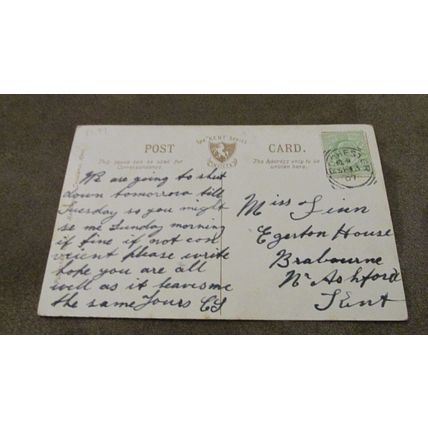 THE "KENT" SERIES
INVICTA
POST CARD.
This space can be used for Correspondence.
The Address only to be written here.
ROCHESTER
SP 13
07
We are going to shut
down tomorrow till
Tuesday so you might
se me Sunday morning
if fine if not con
vient please write
hope you are all
well as it leavesme
the same Yours CS
Miss Linn
Egerton House
Brabourne
Nr Ashford
Kent